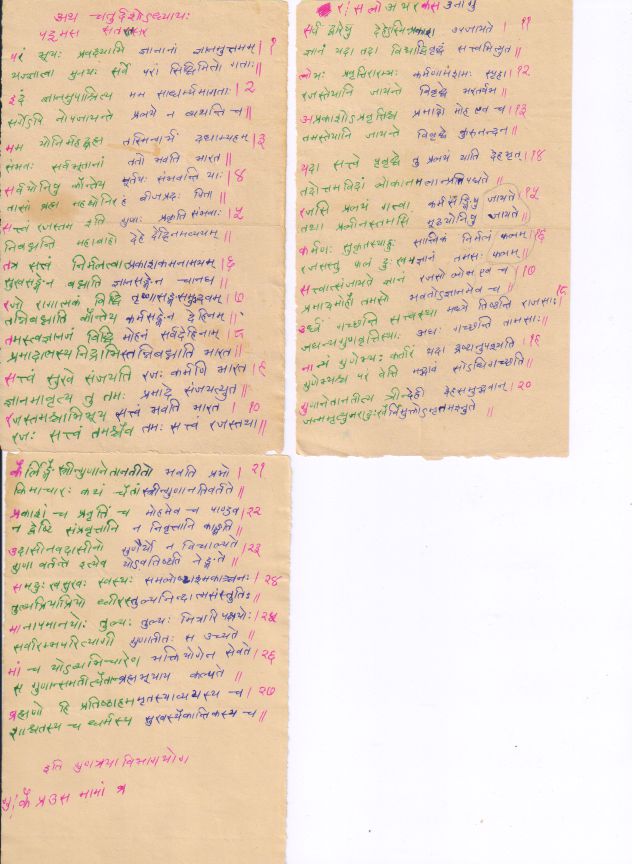 अथ चतुर्दशोऽध्यायः
परं भूयः प्रवक्ष्यामि ज्ञानानां ज्ञानमुत्तमम् | १
यज्ज्ञात्वा मुनयः सर्वे परां सिद्धिमितो गताः ||
इदं ज्ञानमुपाश्रित्य मम साधर्म्यमागताः | २
सर्गेऽपि नोपजायन्ते प्रलये न व्यथन्ति च ||
मम योनिर्महद्ब्रह्म तस्मिन्गर्भं दधाम्यहम् | ३
संभवः सर्वभूतानां ततो भवति भारत ||
सर्वयोनिषु कौन्तेय मूर्तयः संभवन्ति याः | ४
तासां ब्रह्म महद्योनिरहं बीजप्रदः पिता ||
सत्त्वं रजस्तम इति गुणाः प्रकृति संभवाः | ५
निबध्नन्ति महाबाहो देहे देहिनमव्ययम् ||
तत्र सत्त्वं निर्मलत्वात्प्रकाशकमनामयम् | ६
सुखसङ्गेन बध्नाति ज्ञानसङ्गेन चानघ ||
रजो रागात्मकं विद्धि तृष्णासङ्गसमुद्भवम् | ७
तन्निबध्नाति कौन्तेय कर्मसङ्गेन देहिनम् ||
तमस्त्वज्ञानजं विद्धि मोहनं सर्वदेहिनाम् | ८
प्रमादालस्यनिद्राभिस्तन्निबध्नाति भारत ||
सत्त्वं सुखे संजयति रजः कर्मणि भारत | ९
ज्ञानमावृत्य तु तमः प्रमादे संजयत्युत ||
रजस्तमश्चाभिभूय सत्त्वं भवति भारत | १०
रजः सत्त्वं तमश्चैव तमः सत्त्वं रजस्तथा ||
सर्व द्वारेषु देहेऽस्मिन्प्रकाश उपजायते | ११
ज्ञानं यदा तदा विद्याद्विवृद्धं सत्त्वमित्युत ||
लोभः प्रवृत्तिरारम्भः कर्मणामशमः स्पृहा | १२
रजस्येतानि जायन्ते विवृद्धे भरतर्षभ ||
अप्रकाशोऽप्रवृत्तिश्च प्रमादो मोह एव च | १३
तमस्येतानि जायन्ते विवृद्धे कुरुनन्दन ||
यदा सत्त्वे प्रवृद्धे तु प्रलयं याति देहभृत् | १४
तदोत्तमविदां लोकानमलान्प्रतिपद्यते ||
रजसि प्रलयं गत्वा कर्मसङ्गिषु जायते | १५
तथा प्रलीनस्तमसि मूढयोनिषु जायते ||
कर्मणः सुकृतस्याहुः सात्त्विकं निर्मलं फलम् | १६
रजसस्तु फलं दुःखमज्ञानं तमसः फलम् ||
सत्त्वात्संजायते ज्ञानं रजसो लोभ एव च | १७
प्रमादमोहौ तमसो भवतोऽज्ञानमेव च ||
ऊर्ध्वं गच्छन्ति सत्त्वस्था मध्ये तिष्ठन्ति राजसाः | १८
जघन्यगुणवृत्तिस्थाः अधः गच्छन्ति तामसाः ||
नान्यं गुणेभ्यः कर्तारं यदा द्रष्टानुपश्यति | १९
गुणेभ्यश्च परं वेत्ति मद्भावं सोऽधिगच्छति ||
गुणानेतानतीत्य त्रीन्देही देहसमुद्भवान् | २०
जन्ममृत्युजरादुःखैर्विमुक्तोऽमृतमश्नुते ||
कैर्लिङ्गैस्त्रीन्गुणानेतानतीतो भवति प्रभो | २१
किमाचारः कथं चैतांस्त्रीन्गुणानतिवर्तते ||
प्रकाशं च प्रवृत्तिं च मोहमेव च पाण्डव | २२
न द्वेष्टि संप्रवृत्तानि न निवृत्तानि काङ्क्षति ||
उदासीनवदासीनो गुणैर्यो न विचाल्यते | २३
गुणा वर्तन्ते इत्येव योऽवतिष्ठति नेङ्गते ||
समदुःखसुखः स्वस्थः समलोष्टाश्मकाञ्चनः | २४
तुल्यप्रियाप्रियो धीरस्तुल्यनिन्दात्मसंस्तुतिः
मानापमानयोः तुल्यः तुल्यः मित्रारिपक्षयोः | २५
सर्वारम्भपरित्यागी गुणातीतः स उच्यते ||
मां च योऽव्यभिचारेण भक्तियोगेन सेवते | २६
स गुणान्समतीत्यैतान्ब्रह्मभूयाय कल्पते ||
ब्रह्मणो हि प्रतिष्ठाहममृतस्याव्ययस्य च | २७
शाश्वतस्य च धर्मस्य सुखस्यैकान्तिकस्य च ||
इति गुणत्रयाविभागयोग